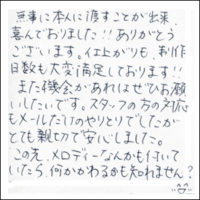 無事に本人に渡すことが出来、
喜んでおりました!!ありがとう
ございます。仕上がりも、制作
日数も大変満足しております!!
また機会があればぜひお願
いしたいです。スタッフの方の対応
もメールだけのやりとりでしたが
とても親切で安心しました。
この先、メロディーなんかも付いて
いたら、何かかわるかも知れません?